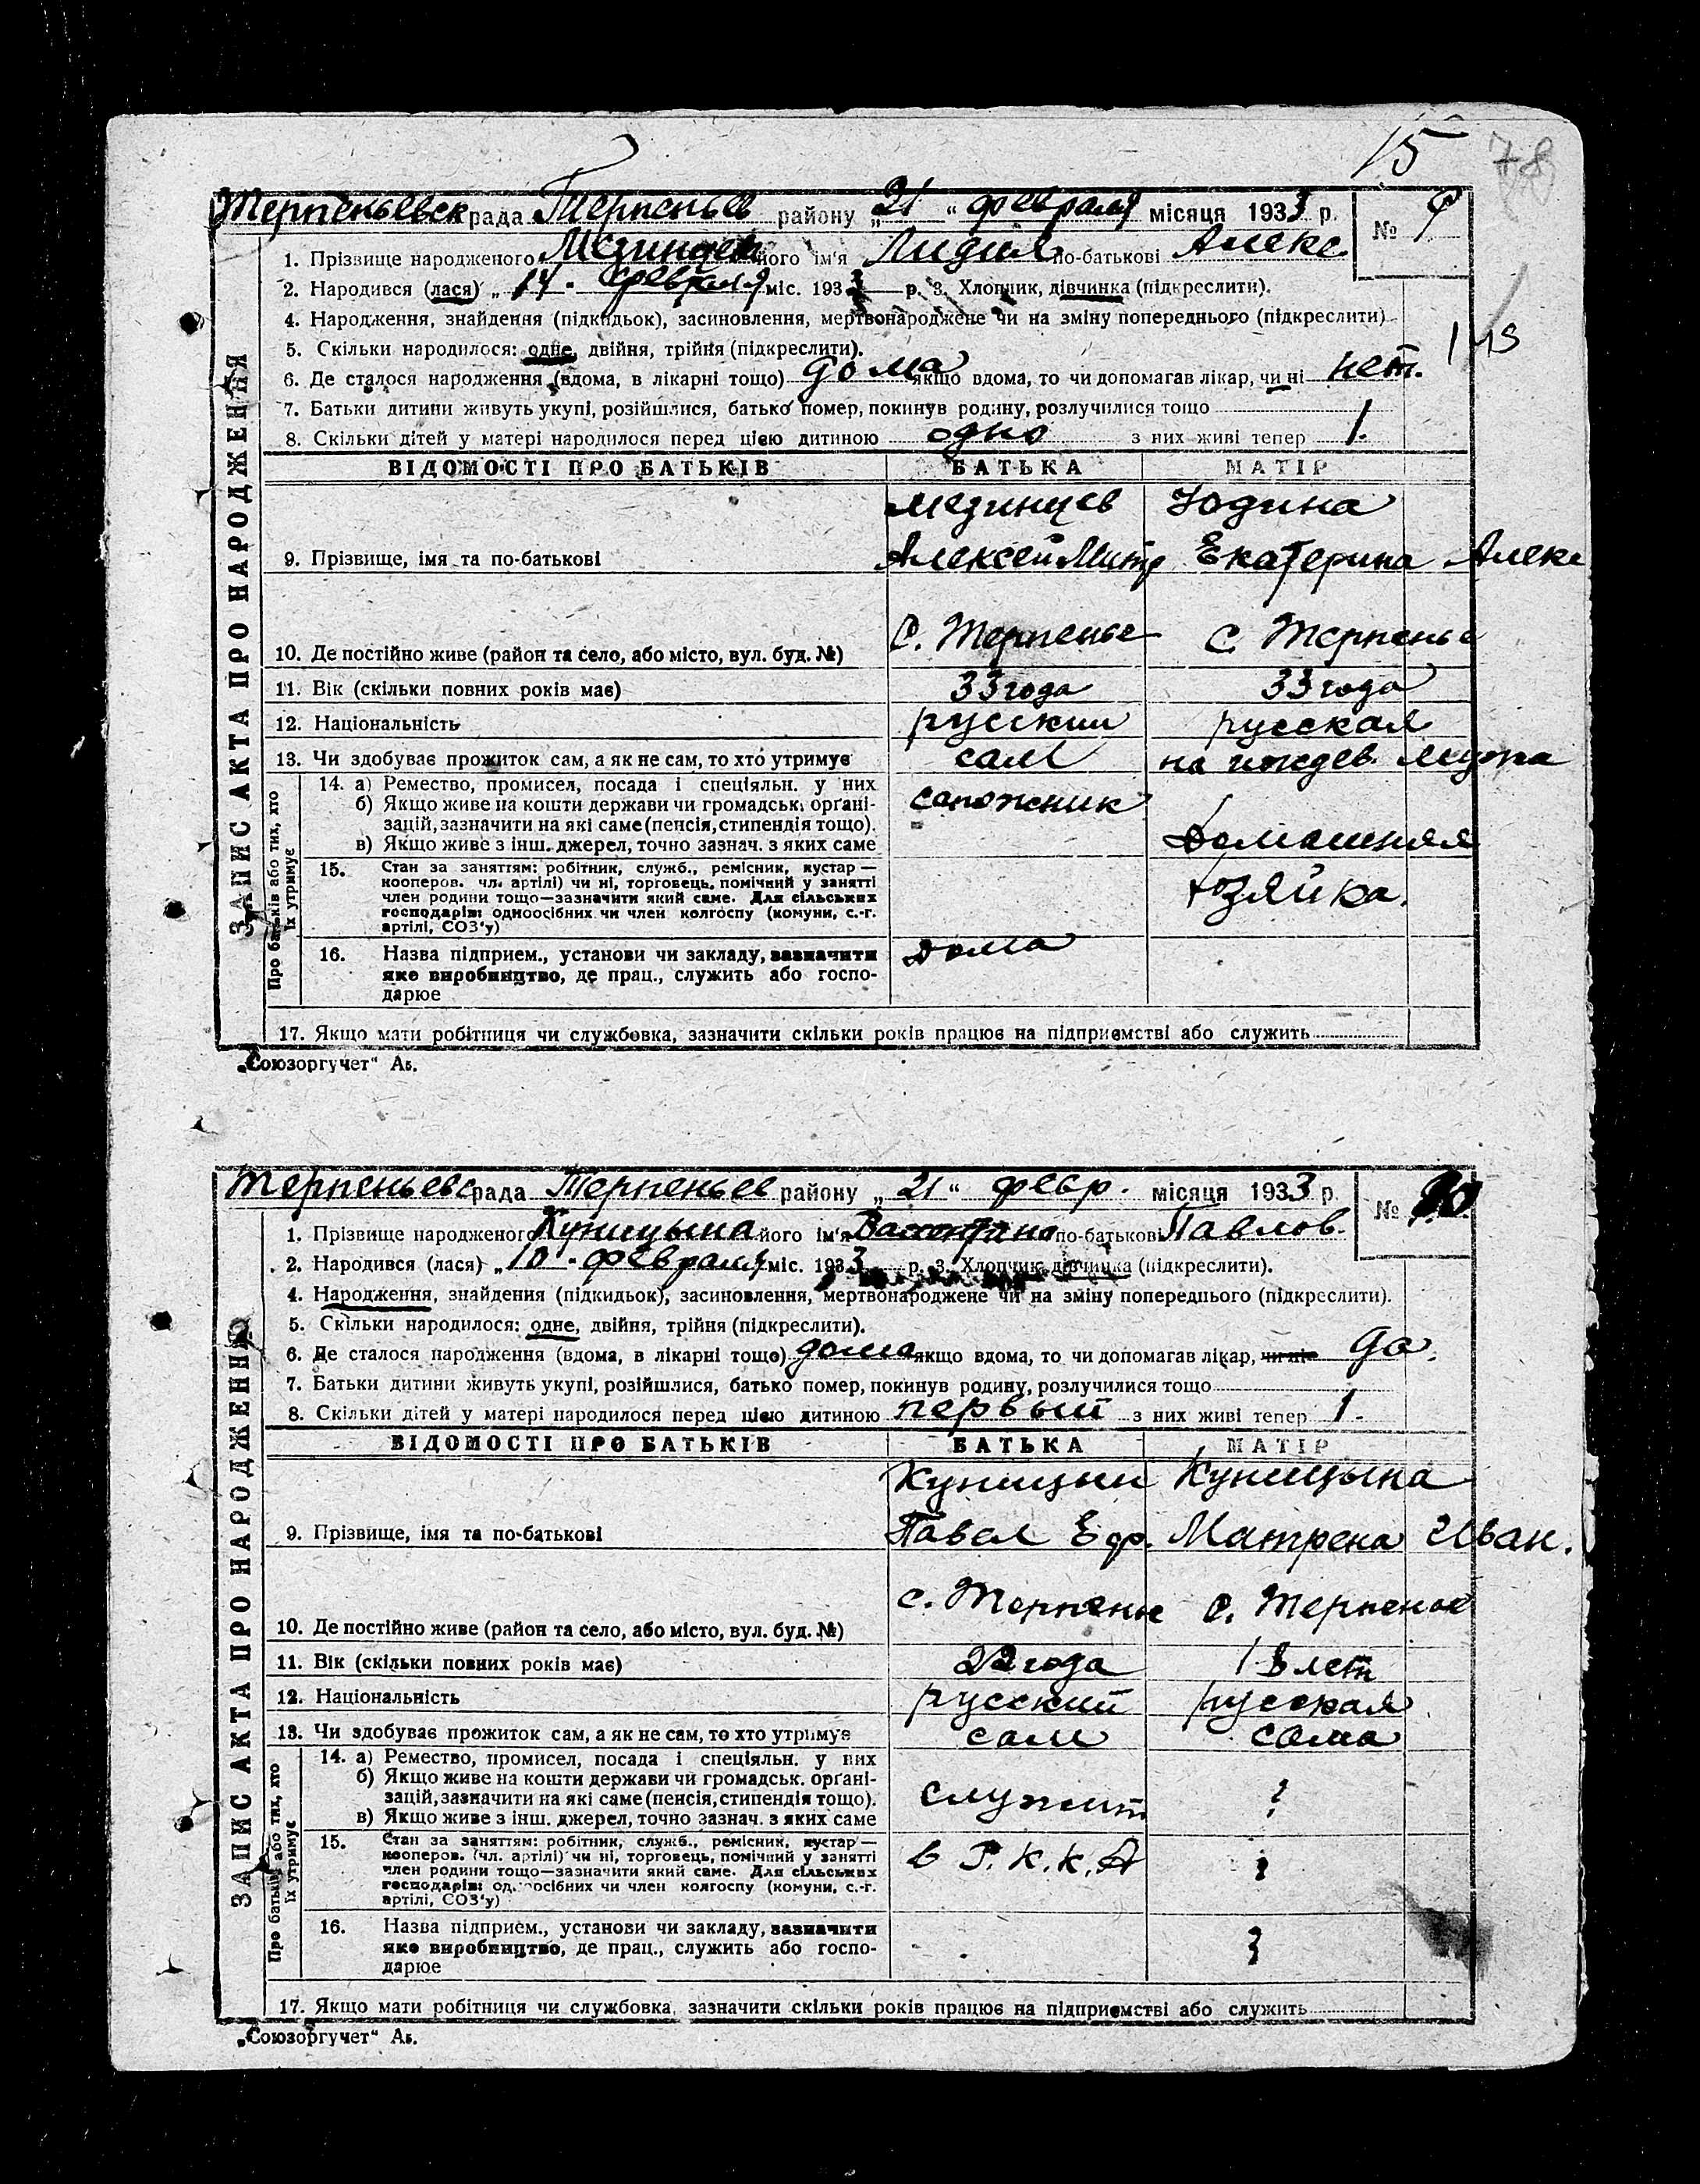 15 78
Терпеньевск рада Терпеньев району „21“ февраля місяця 1933 р. № 9
1. Прізвище народженого Мезинцева його ім'я Лидия по-батькові Алекс.
2. Народився (лася) „14" февраля міс. 1933 р. 3. Хлопчик, дівчинка (підкреслити).
4. Народження, знайдення (підкидьок), засиновлення, мертвонароджене чи на зміну попереднього (підкреслити)
5. Скільки народилося: одне, двійня, трійня (підкреслити).
6. Де сталося народження (вдома, в лікарні тощо) дома якщо вдома, то чи допомагав лікар, чи ні нет.
7. Батьки дитини живуть укупі, розійшлися, батько помер, покинув родину, розлучилися тощо
8. Скільки дітей у матері народилося перед цією дитиною одно з них живі тепер 1.
ВІДОМОСТІ ПРО БАТЬКІВ БАТЬКА МАТІР
Мезинцев Юдина
9. Прізвище, імя та по-батькові Алексей Митр Екатерина Алекс
10. Де постійно живе (район та село, або місто, вул. буд. №) С. Терпенье С Терпенье
11. Вік (скільки повних років має) 33 года 33 года
12. Національність русский русская
13. Чи здобуває прожиток сам, а як не сам, то хто утримує сам на иждев. мужа
14. а) Ремество, промисел, посада і спеціяльн. у них
б) Якщо живе на кошти держави чи громадськ. орґані- сапожник
зацій, зазначити на які саме (пенсія, стипендія тощо).
в) Якщо живе з інш. джерел, точно зазнач. з яких саме Домашняя
15. Стан за заняттям: робітник, служб., ремісник, кустар —
кооперов. чл. артілі) чи ні, торговець, помічний у занятті
член родини тощо—зазначити який саме. Для сільських хозяйка.
господарів: одноосібних чи член колгоспу (комуни, с.-г.
артілі, СОЗ'у)
16. Назва підприєм., установи чи закладу, зазначити дома
яке виробництво, де прац., служить або госпо-
дарює
17. Якщо мати робітниця чи службовка, зазначити скільки років працює на підприємстві або служить
ЗАПИС АКТА ПРО НАРОДЖЕННЯ
Про батьків або тих, хто
їх утримує
„Союзоргучет“ Аб.
Терпеньевс рада Терпеньев району „21“ февр. місяця 1933 р. № 10
1. Прізвище народженого Куницына його ім'я по-батькові Павлов.
2. Народився (лася) „10" февраля міс. 1933 р. 3. Хлопчик, дівчинка (підкреслити).
4. Народження, знайдення (підкидьок), засиновлення, мертвонароджене чи на зміну попереднього (підкреслити).
5. Скільки народилося: одне, двійня, трійня (підкреслити).
6. Де сталося народження (вдома, в лікарні тощо) дома якщо вдома, то чи допомагав лікар, чи ні да.
7. Батьки дитини живуть укупі, розійшлися, батько помер, покинув родину, розлучилися тощо
8. Скільки дітей у матері народилося перед цією дитиною первый з них живі тепер 1.
ВІДОМОСТІ ПРО БАТЬКІВ БАТЬКА МАТІР
Куницын Куницына
9. Прізвище, імя та по-батькові Павел Ефр. Матрена Иван.
10. Де постійно живе (район та село, або місто, вул. буд. №) с. Терпенье с. Терпенье
11. Вік (скільки повних років має) 22 года 18 лет
12. Національність русский русская
13. Чи здобуває прожиток сам, а як не сам, то хто утримує сам сама
14. а) Ремество, промисел, посада і спеціяльн. у них
б) Якщо живе на кошти держави чи громадськ. орґані- служит ?
зацій, зазначити на які саме (пенсія, стипендія тощо).
в) Якщо живе з інш. джерел, точно зазнач. з яких саме
15. Стан за заняттям: робітник, служб., ремісник, кустар —
кооперов. (чл. артілі) чи ні, торговець, помічний у занятті в Р.К.К.А ?
член родини тощо—зазначити який саме. Для сільських
господарів: одноосібних чи член колгоспу (комуни, с.-г.
артілі, СОЗ'у)
16. Назва підприєм., установи чи закладу, зазначити ?
яке виробництво, де прац., служить або госпо-
дарює
17. Якщо мати робітниця чи службовка, зазначити скільки років працює на підприємстві або служить
ЗАПИС АКТА ПРО НАРОДЖЕННЯ
Про батьків або тих, хто
їх утримує
„Союзоргучет“ Аб.